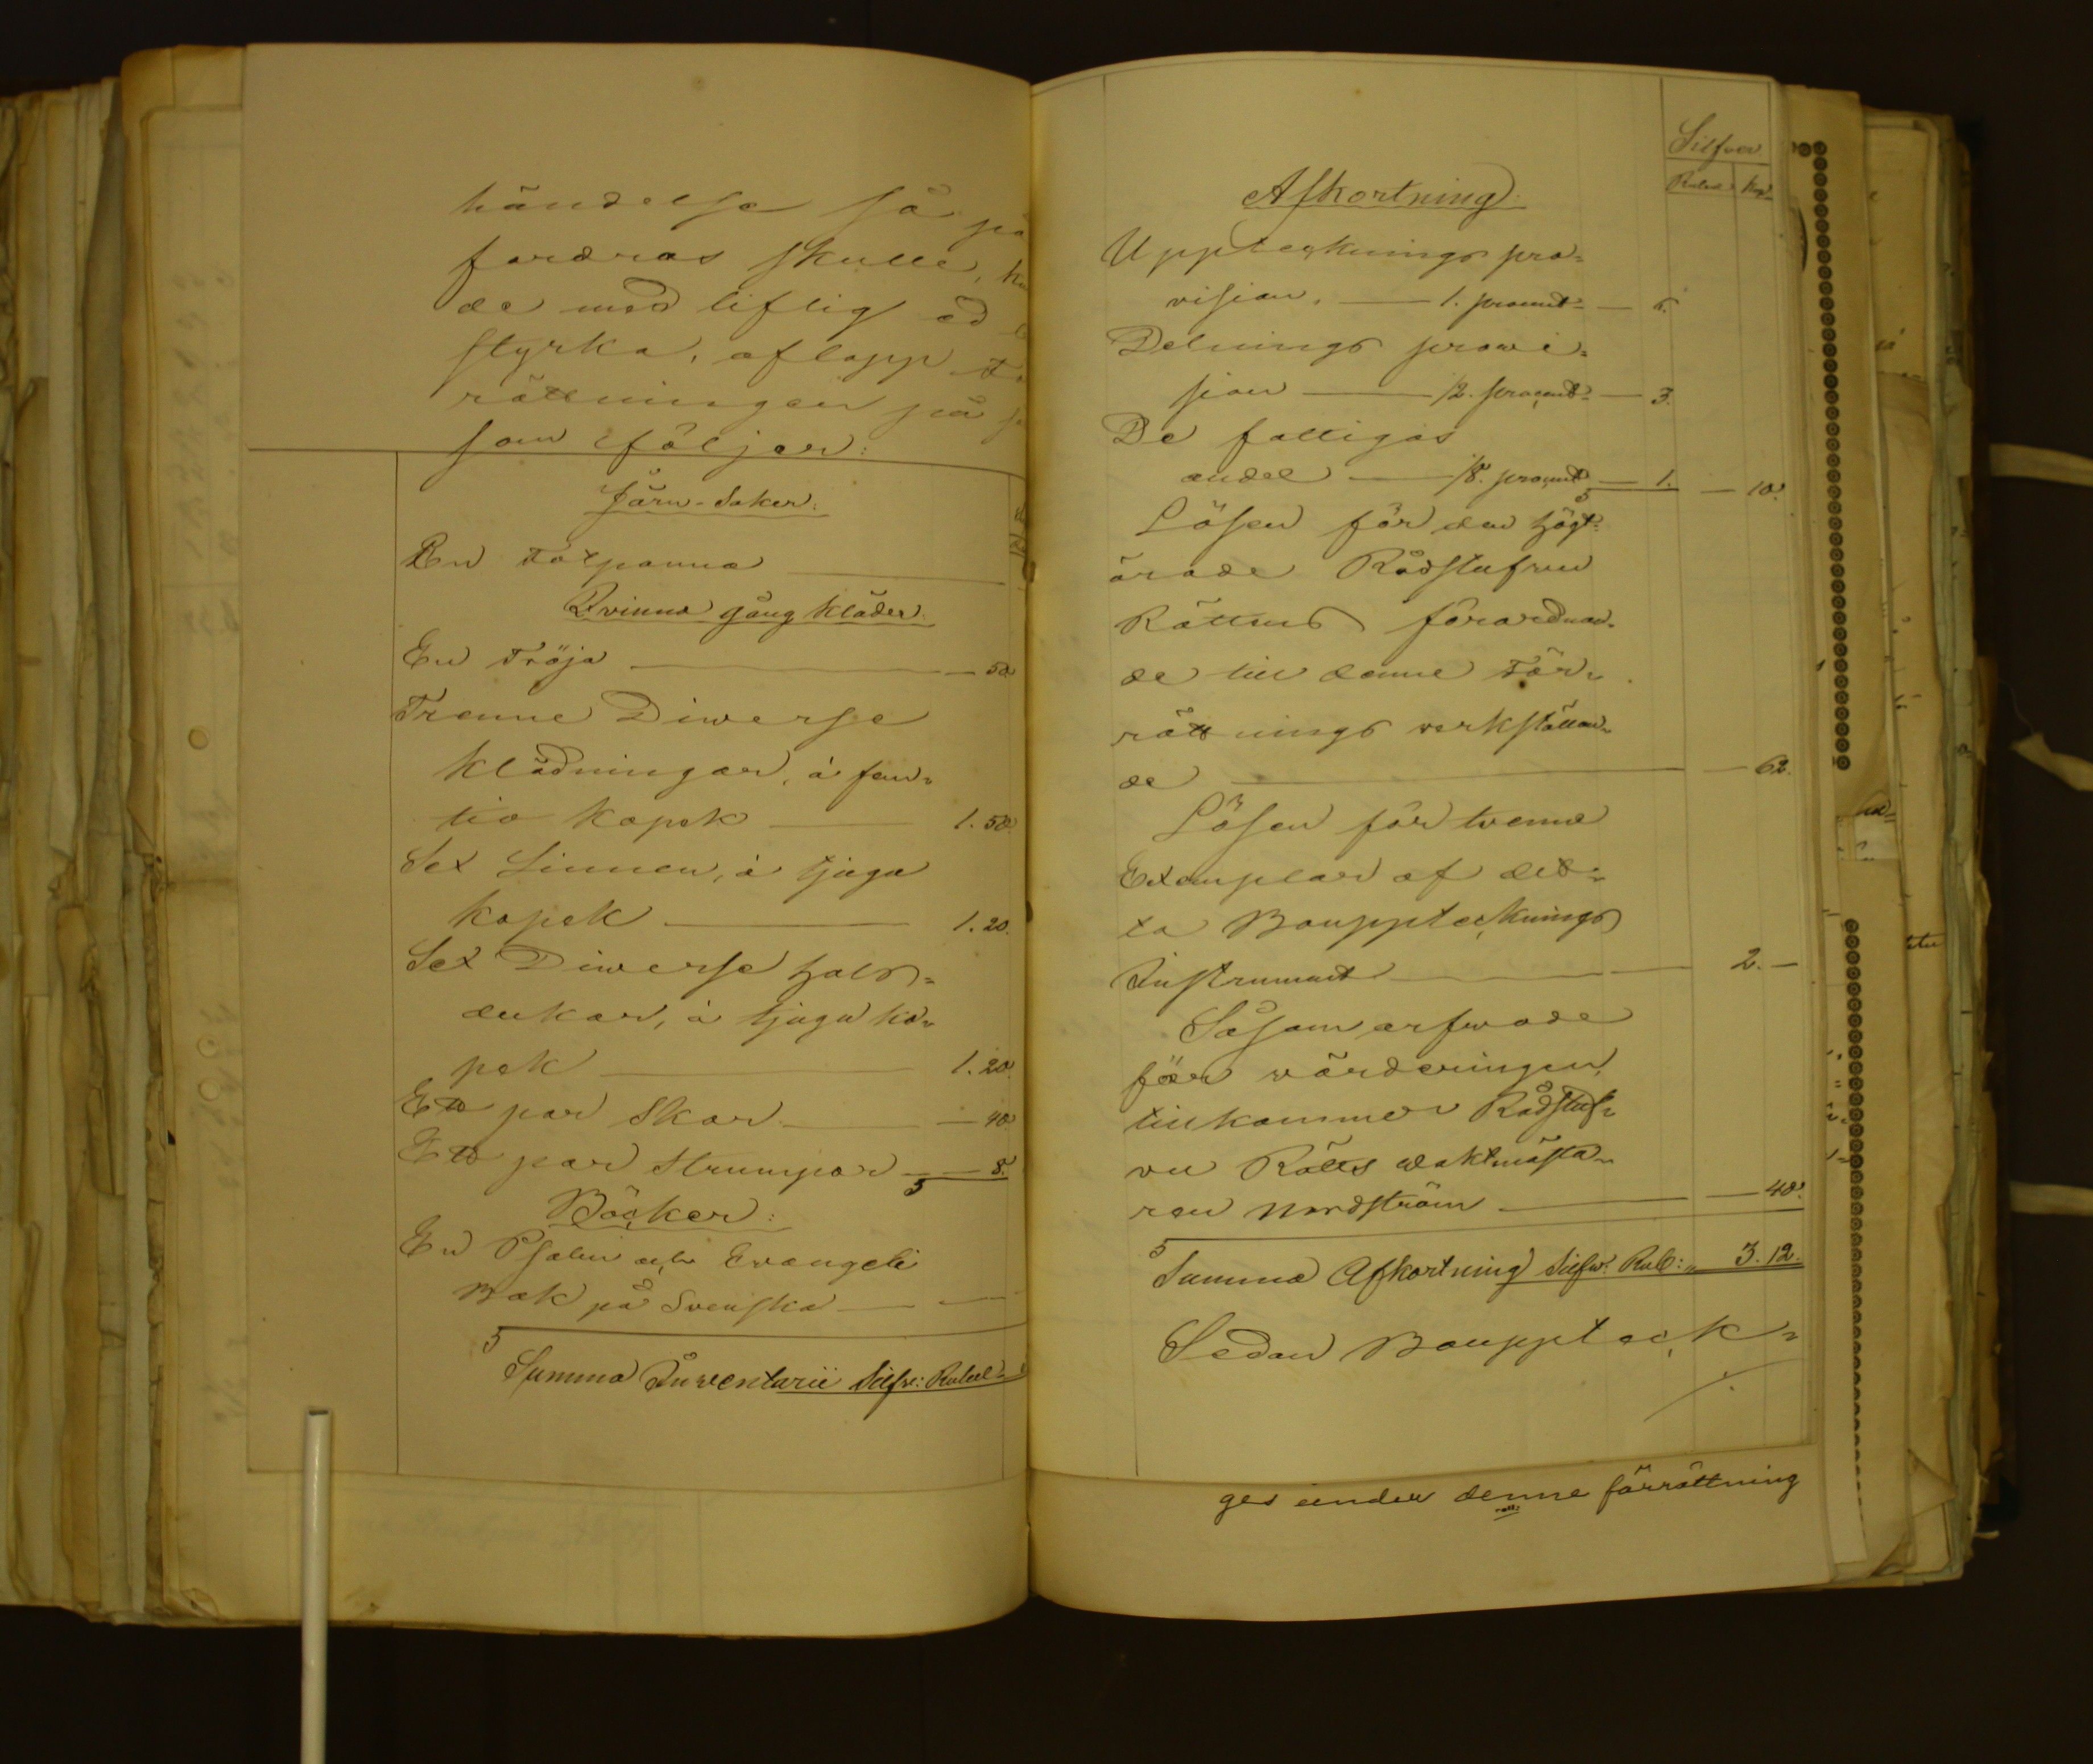 händelse så på
fordras skulle,
de med liflig ed
styrka, aflopp
rättningen på
som följer:
Järn-Saker:
En Tolpanna
Qvinno gång kläder:
En Tröja — 50
Trenne Diverse
klädningar, à fem=
tio kopek — 1. 50.
Sex Linnen, à tjugu
kopek — 1. 20.
Sex Diwerse hals=
dukar, à tjugu ko=
pek — 1. 20.
Ett par Skor — 40
Ett par Strumpor — 8.
Böcker:
En Psalm och Evangeli
Bok på Svenska —
Summa Inventarii Silfw: Rubel
Silfver
Rubel Kop.
Afkortning:
Uppteknings pro=
vision. — 1. procent — 6.
Delnings prowi=
sion — 1/2. procent — 3.
De fattigas
andel — 1/8. procent — 1. — 10.
Lösen för den högt=
ärade Rådstufvu
Rättens förordnan=
de till denne För=
rättnings verkställan=
de — 62.
Lösen för tvenne
Exemplar af det=
ta Bouppteknings
Instrument — 2. —
Såsom arfwode
för värderingen,
tillkommer Rådstuf=
vu Rätts waktmästa=
ren Nordström — 40.
Summa Afkortning Silfw. Rub: „ 3. 12.
Sedan Bouppteck=
./.
ges under denne förrättning